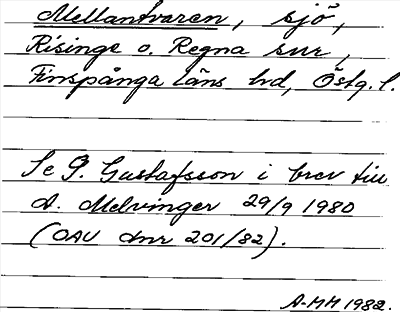 Mellantvaren, sjö,
Risinge o. Regna snr,
Finspånga läns hd, Östg. l.
Se G. Gustafsson i brev till
A. Melvinger 29/9 1980
(OAU dnr 201/82).
A-MH 1982.